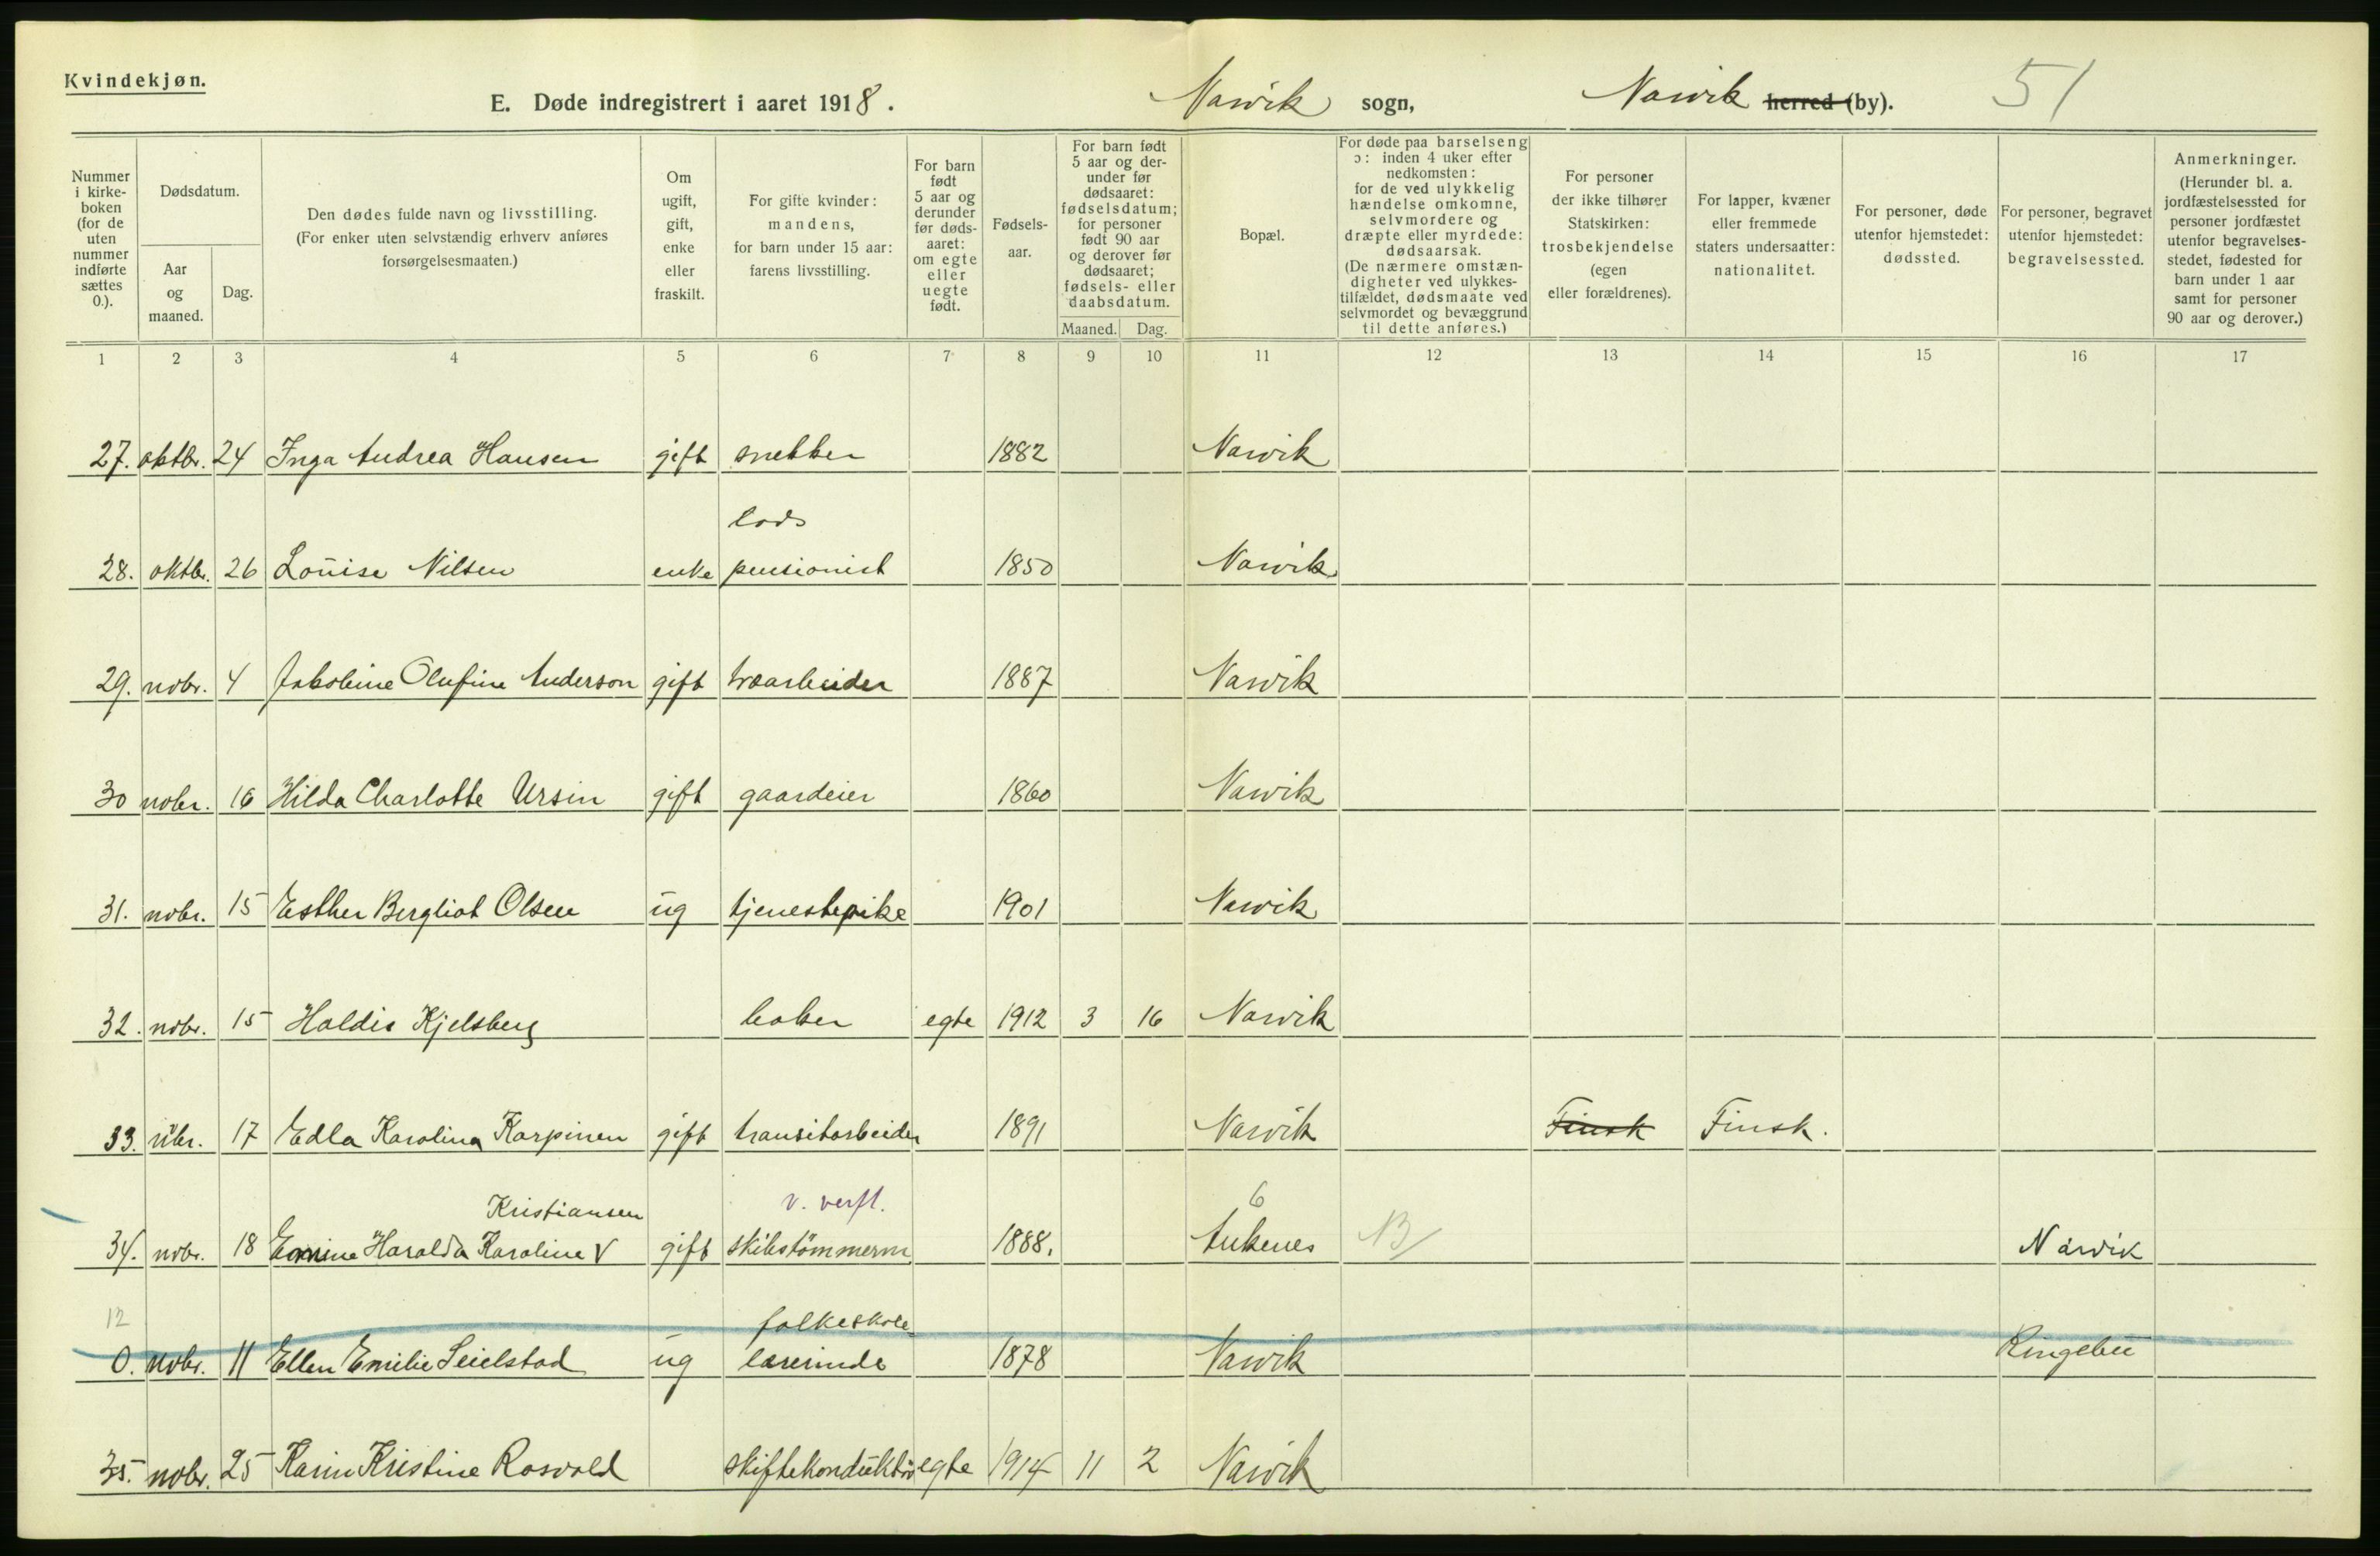 Kvindekjøn.
E. Døde indregistrert i aaret 1918.
Narvik sogn,
Narvik herred (by).
51
Nummer i kirkeboken (for de uten nummer indførte sættes 0.).
Dødsdatum.
Aar og maaned.
Dag.
Den dødes fulde navn og livsstilling.
(For enker uten selvstændig erhverv anføres
forsørgelsesmaaten.)
Om ugift, gift, enke eller fraskilt.
For gifte kvinder: mandens, for barn under 15 aar: farens livsstilling.
For barn født 5 aar og derunder før dødsaaret: om egte eller uegte født.
Fødselsaar.
For barn født 5 aar og derunder før dødsaaret: fødselsdatum; for personer født 90 aar og derover før dødsaaret; fødsels- eller daabsdatum.
Maaned. Dag.
Bopæl.
For døde paa barselseng ɔ: inden 4 uker efter nedkomsten: for de ved ulykkelig hændelse omkomne, selvmordere og dræpte eller myrdede: dødsaarsak. (De nærmere omstændigheter ved ulykkestilfældet, dødsmaate ved selvmordet og bevæggrund til dette anføres.)
For personer der ikke tilhører Statskirken: trosbekjendelse (egen eller forældrenes).
For lapper, kvæner eller fremmede staters undersaatter: nationalitet.
For personer, døde utenfor hjemstedet: dødssted.
For personer, begravet utenfor hjemstedet: begravelsessted.
Anmerkninger. (Herunder bl. a. jordfæstelsessted for personer jordfæstet utenfor begravelsesstedet, fødested for barn under 1 aar samt for personer 90 aar og derover.)
1 2 3 4 5 6 7 8 9 10 11 12 13 14 15 16 17
27. oktbr. 24 Inga Andrea Hansen gift snekker 1882 Narvik
lods
28. oktbr. 26 Louise Nilsen enke pensionist 1850 Narvik
29. novbr. 4 Jakobine Olufine Anderson gift træarbeider 1887 Narvik
30 novbr. 16 Hilda Charlotte Ursin gift gaardeier 1860 Narvik
31. novbr. 15 Esther Bergliot Olsen ug tjenestepike 1901 Narvik
32. novbr. 15 Haldis Kjelsberg baker egte 1912 3 16 Narvik
33. nvbr. 17 Edla Karolina Karpinen gift transitarbeider 1891 Narvik Finsk Finsk.
Kristiansen v. verft. 6
34. novbr. 18 Haralda Karoline V gift skibstømmerm. 1888. Ankenes B Narvik
12 folkeskole=
0. novbr. 11 Ellen Emilie Seielstad ug lærerinde 1878 Narvik Ringebu
35. novbr. 25 Karin Kristine Rosvold skiftekonduktør egte 1914 11 2 Narvik